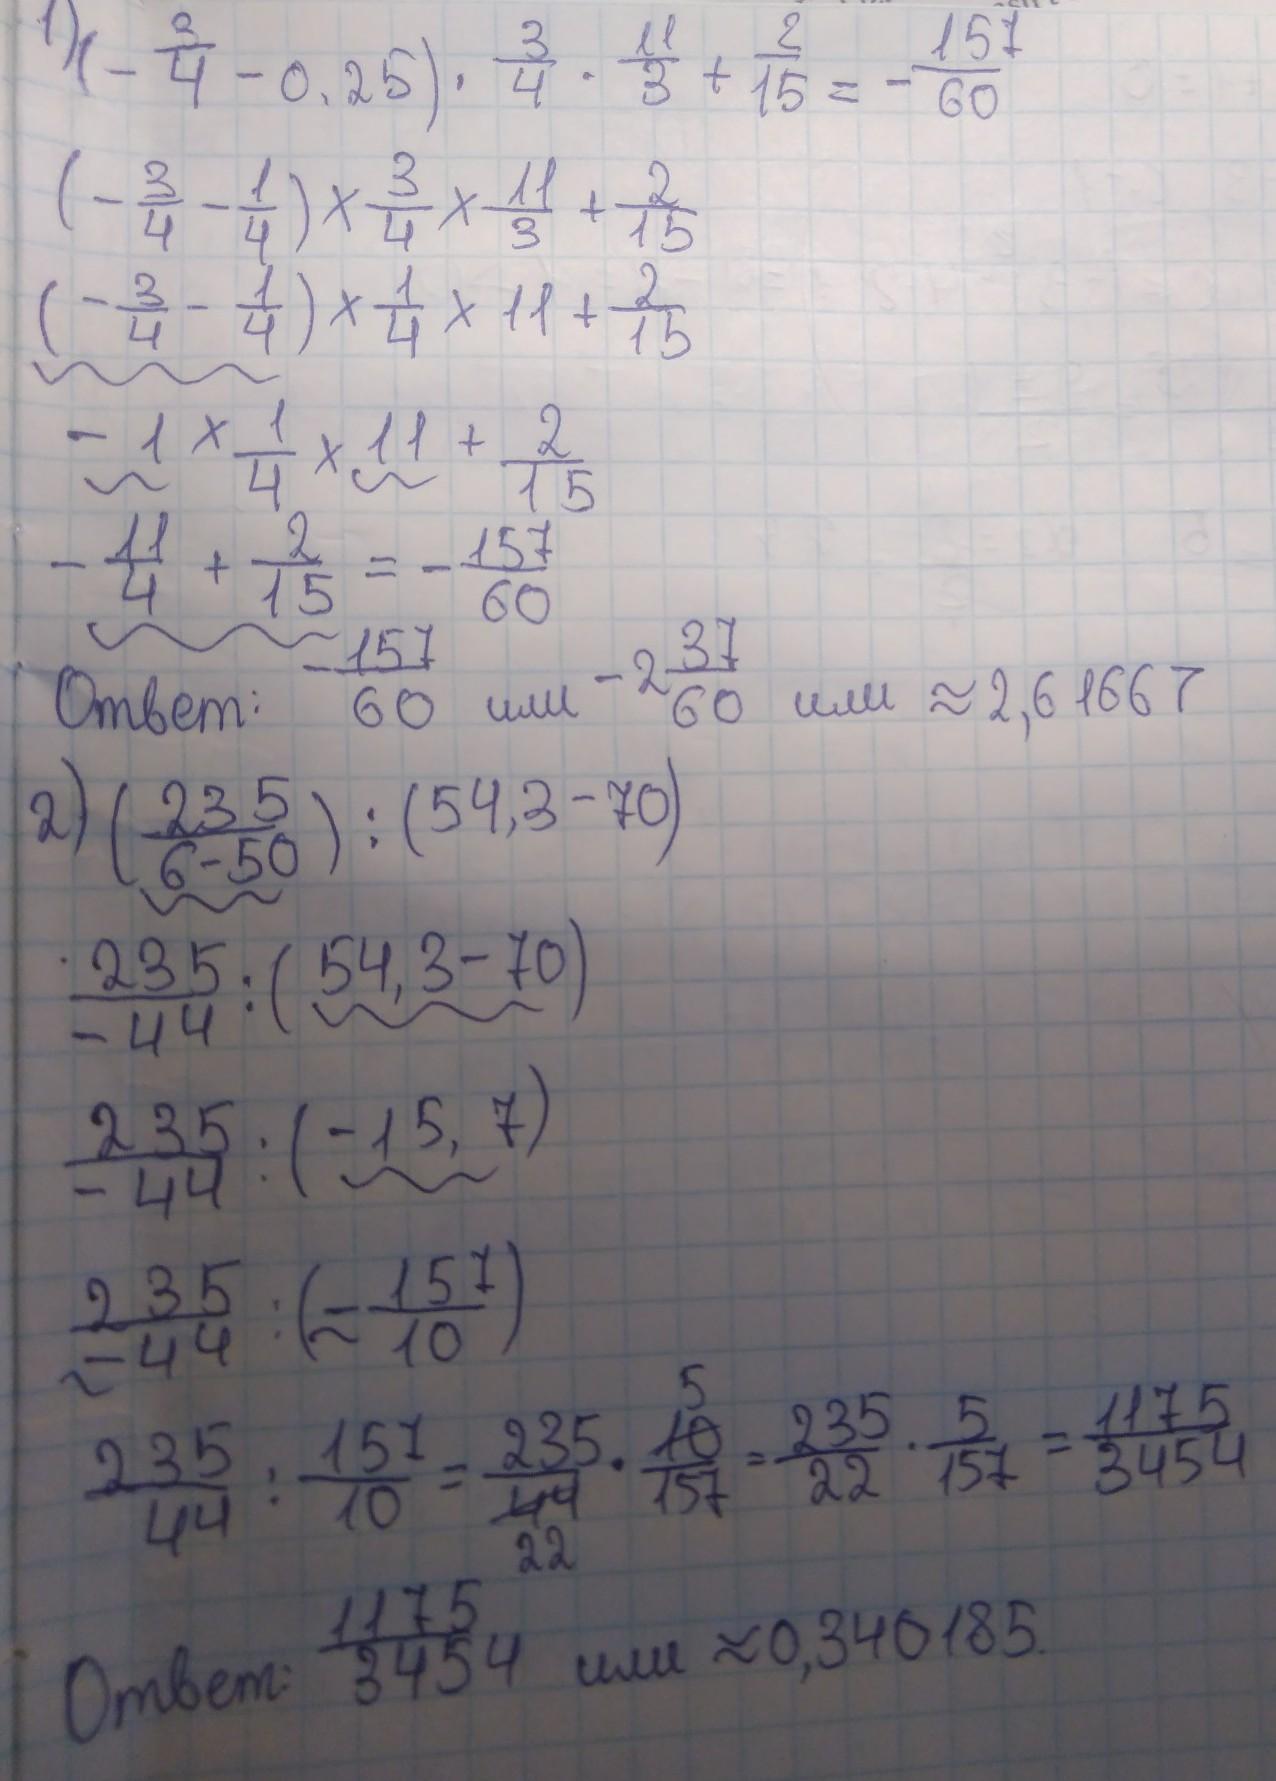 1) (-3/4 - 0.25) · 3/4 · 11/3 + 2/15 = -157/60
(-3/4 - 1/4) × 3/4 × 11/3 + 2/15
(-3/4 - 1/4) × 1/4 × 11 + 2/15
-1 × 1/4 × 11 + 2/15
-11/4 + 2/15 = -157/60
Ответ: -157/60 или -2 37/60 или ≈2,61667
2) (235/(6-50)) : (54,3-70)
235/-44 : (54,3-70)
235/-44 : (-15,7)
235/-44 : (-157/10)
235/44 : 157/10 = 235/44 22 · 5 10/157 = 235/22 · 5/157 = 1175/3454
Ответ: 1175/3454 или ≈0,340185.